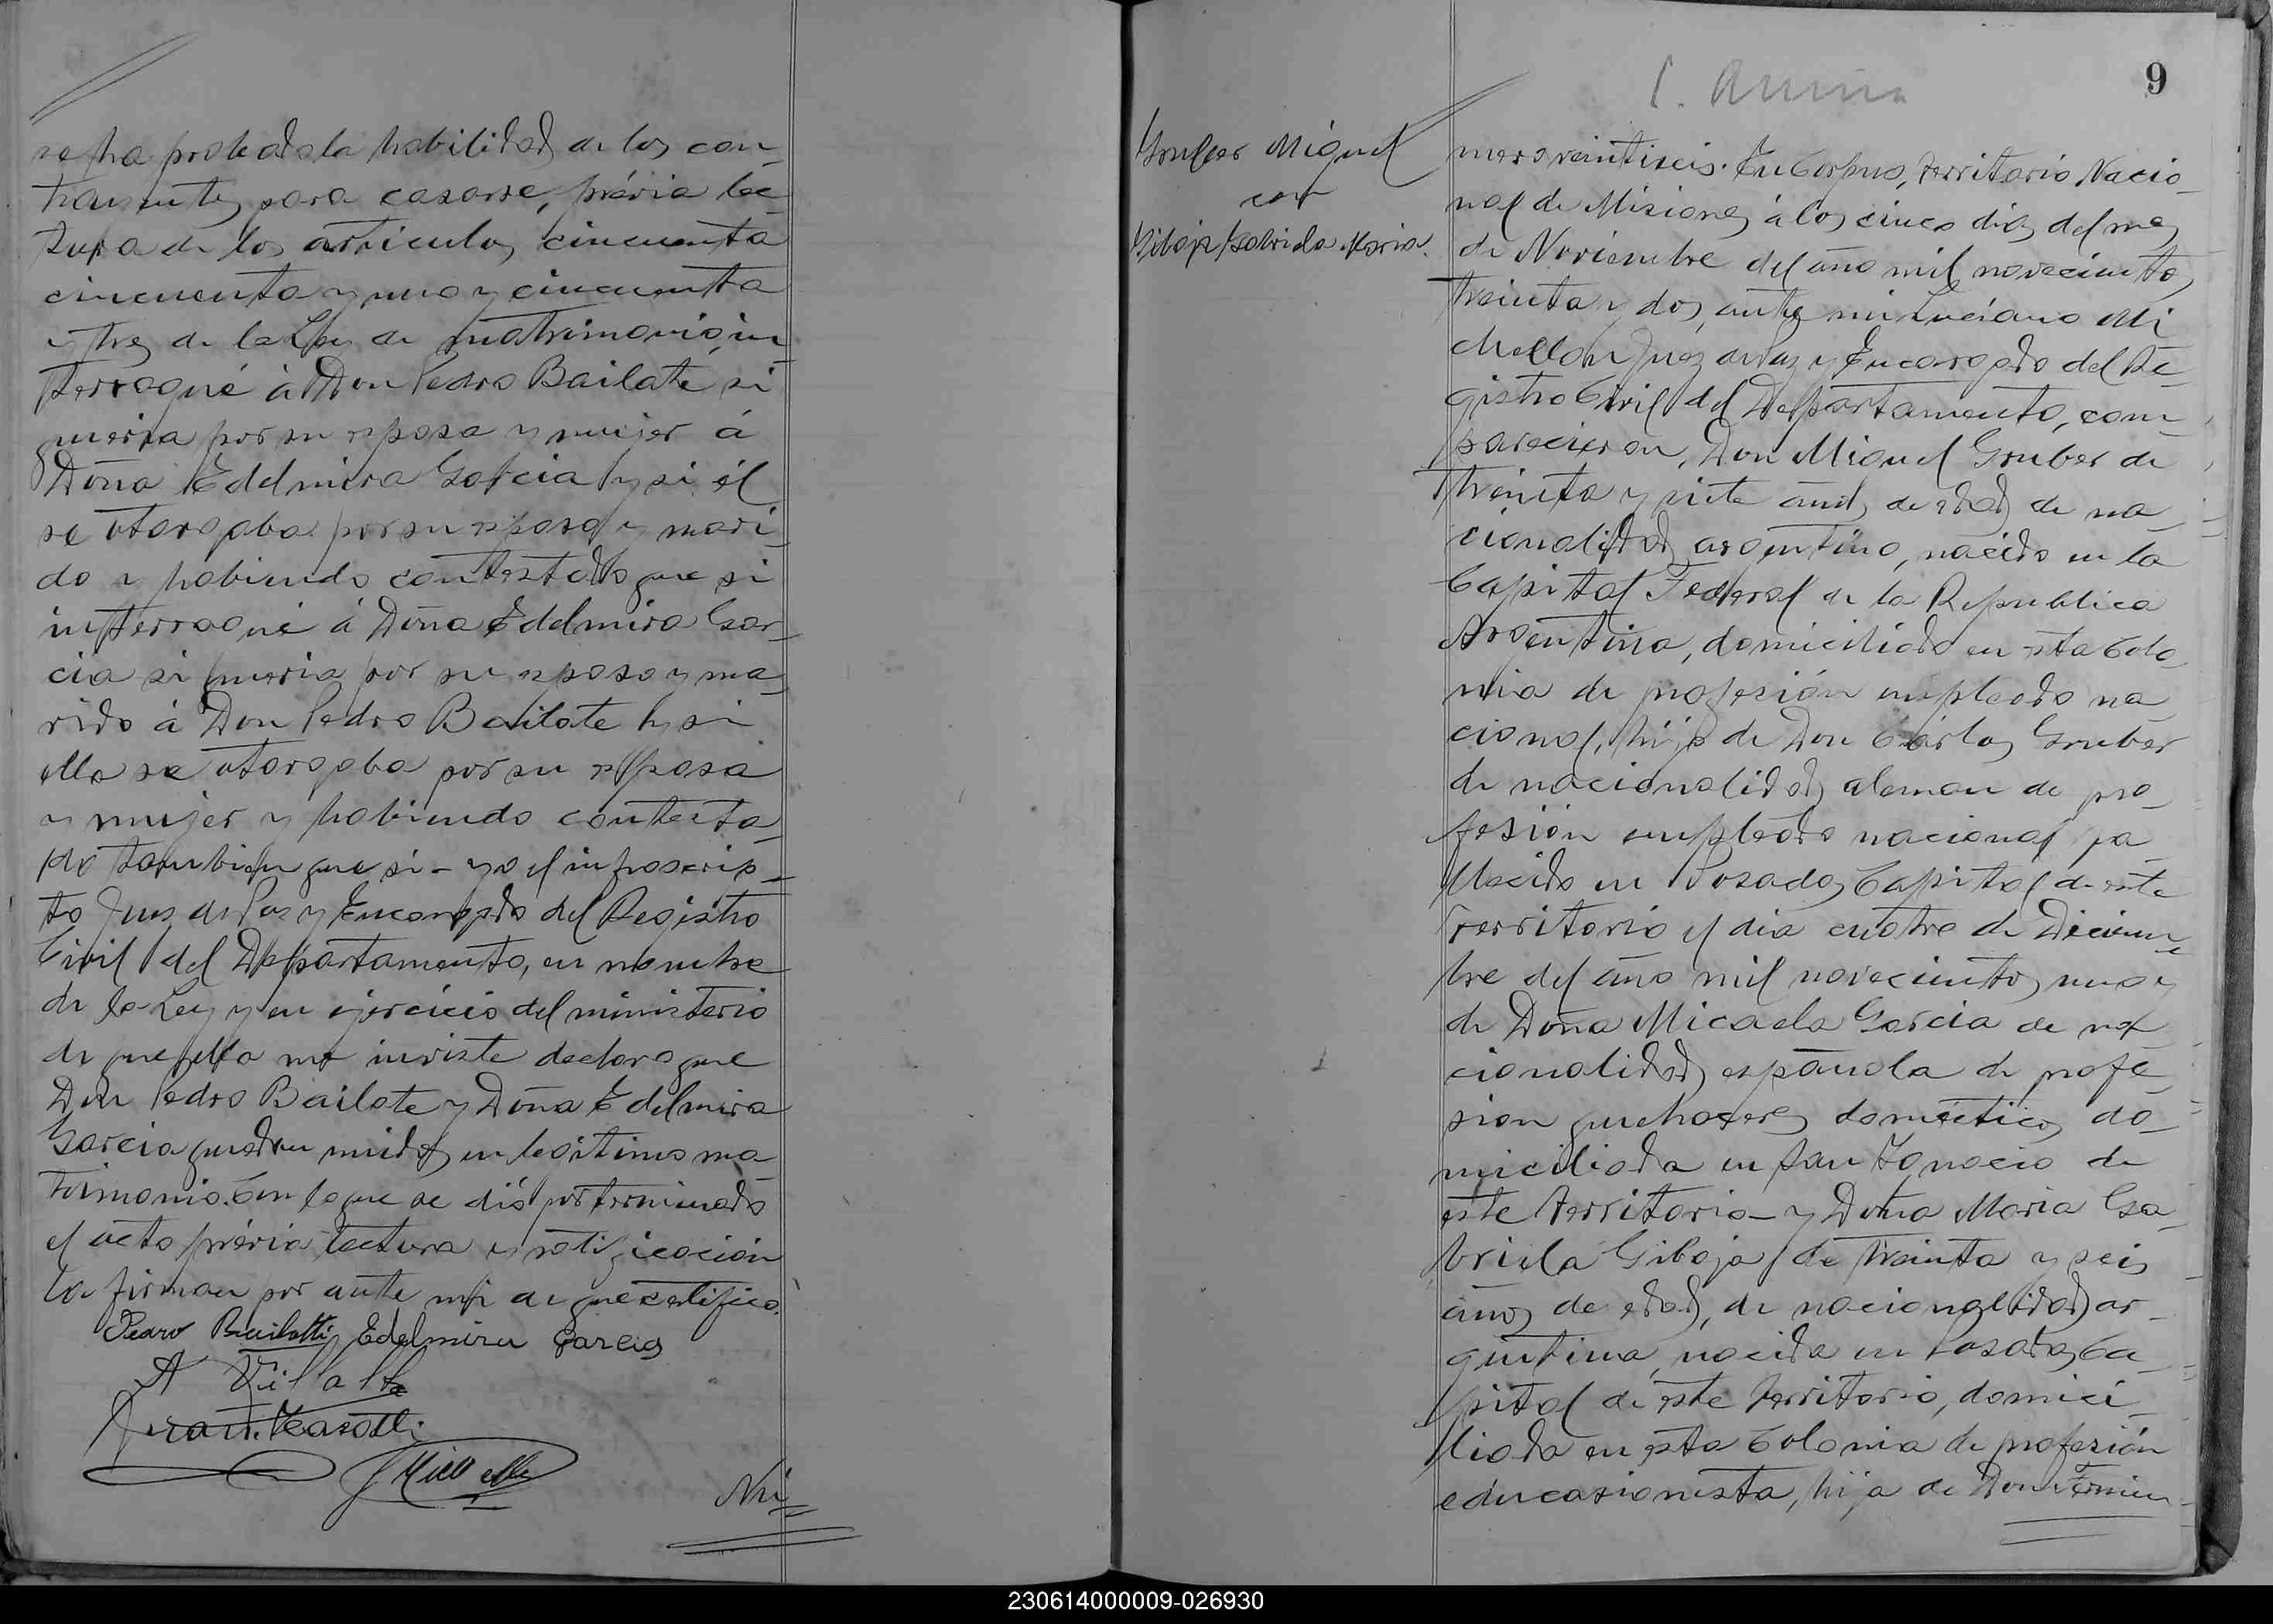 se ha probado la habilidad de los con-
trayentes para casarse, prévia lec-
tura de los articulos cincuenta
cincuenta y uno y cincuenta
y tres de la Ley de matrimonio, in-
terrogué á Don Pedro Bailate si
queria por su esposa y mujer á
Doña Edelmira Garcia y si él
se otorgaba por su esposo y mari-
do y habiendo contestado que si
interrogué á Doña Edelmira Gar-
cia si queria por su esposo y ma-
rido á Don Pedro Bailate y si
ella se otorgaba por su esposa
y mujer y habiendo contesta-
do tambien que si - yo el infrascrip-
to Juez de Paz y Encargado del Registro
Civil del Departamento, en nombre
de la Ley y en ejercicio del ministerio
de que ella me inviste declaro que
Don Pedro Bailate y Doña Edelmira
Garcia quedan unidos en legitimo ma-
trimonio. Con lo que se dió por terminado
el acto prévia lectura y ratificación
la firman por ante mi de que certifico.
Pedro Bailatti Edelmira Garcia
A Villalba
Juan
Nú-
9
Gruber Miguel
con
Giboja Gabriela Maria.
mero veintiseis. En Corpus, territorio Nacio-
nal de Misiones á los cinco dias del mes
de Noviembre del año mil novecientos
treinta y dos, ante mi Luciano Mi
chellon Juez de Paz y Encargado del Re-
gistro Civil del Departamento, com-
parecieron, Don Miguel Gruber de
treinta y siete años de edad de na-
cionalidad argentino, nacido en la
Capital Federal de la Republica
Argentina, domiciliado en esta Colo-
nia de profesión empleado na-
cional, hijo de Don Cárlos Gruber
de nacionalidad aleman de pro-
fesión empleado nacional fa-
llecido en Posadas Capital de este
Territorio el dia cuatro de Diciem-
bre del año mil novecientos uno y
de Doña Micaela Garcia de na-
cionalidad española de profe-
sion quehaceres domésticos do-
miciliada en San Ignacio de
este territorio - y Doña Maria Ga-
briela Giboja de treinta y seis
años de edad, de nacionalidad ar-
gentina, nacida en Posadas Ca-
pital de este territorio, domici-
liada en esta Colonia de profesión
educasionista, hija de Don Fermin-
230614000009-026930